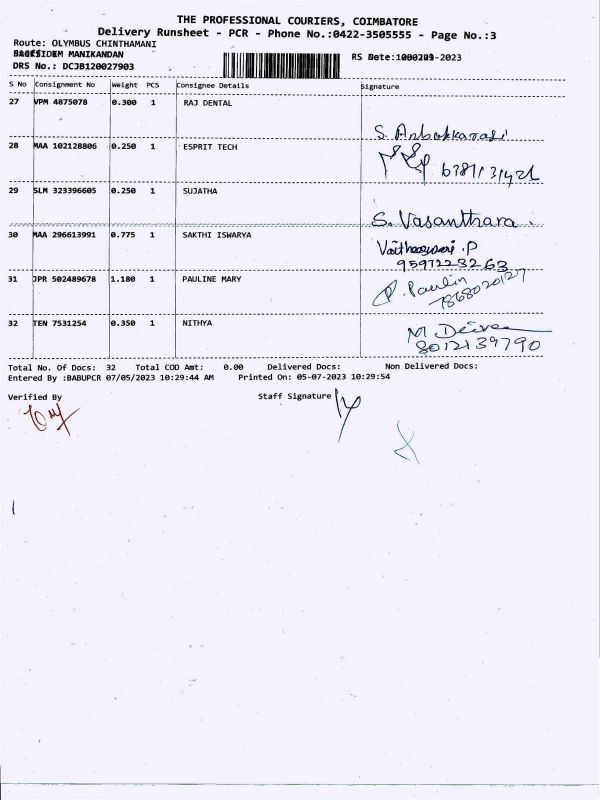 THE PROFESSIONAL COURIERS, COIMBATORE
Delivery Runsheet - PCR - Phone No.:0422-3505555 - Page No.:3
Route: OLYMBUS CHINTHAMANI
MANIKANDAN
DRS No.: DCJB120027903
RS Date: -2023
S No Consignment No Weight PCS Consignee Details Signature
27 VPM 4875078 0.300 1 RAJ DENTAL
28 MAA 102128806 0.250 1 ESPRIT TECH
29 SLM 323396605 0.250 1 SUJATHA
S. Vasanthara.
30 MAA 296613991 0.775 1 SAKTHI ISWARYA
9597223263
31 JPR 502489678 1.180 1 PAULINE MARY
P. Paulin
7868020127
32 TEN 7531254 0.350 1 NITHYA
8012139790
Total No. Of Docs: 32 Total COD Amt: 0.00 Delivered Docs: Non Delivered Docs:
Entered By :BABUPCR 07/05/2023 10:29:44 AM Printed On: 05-07-2023 10:29:54
Verified By Staff Signature